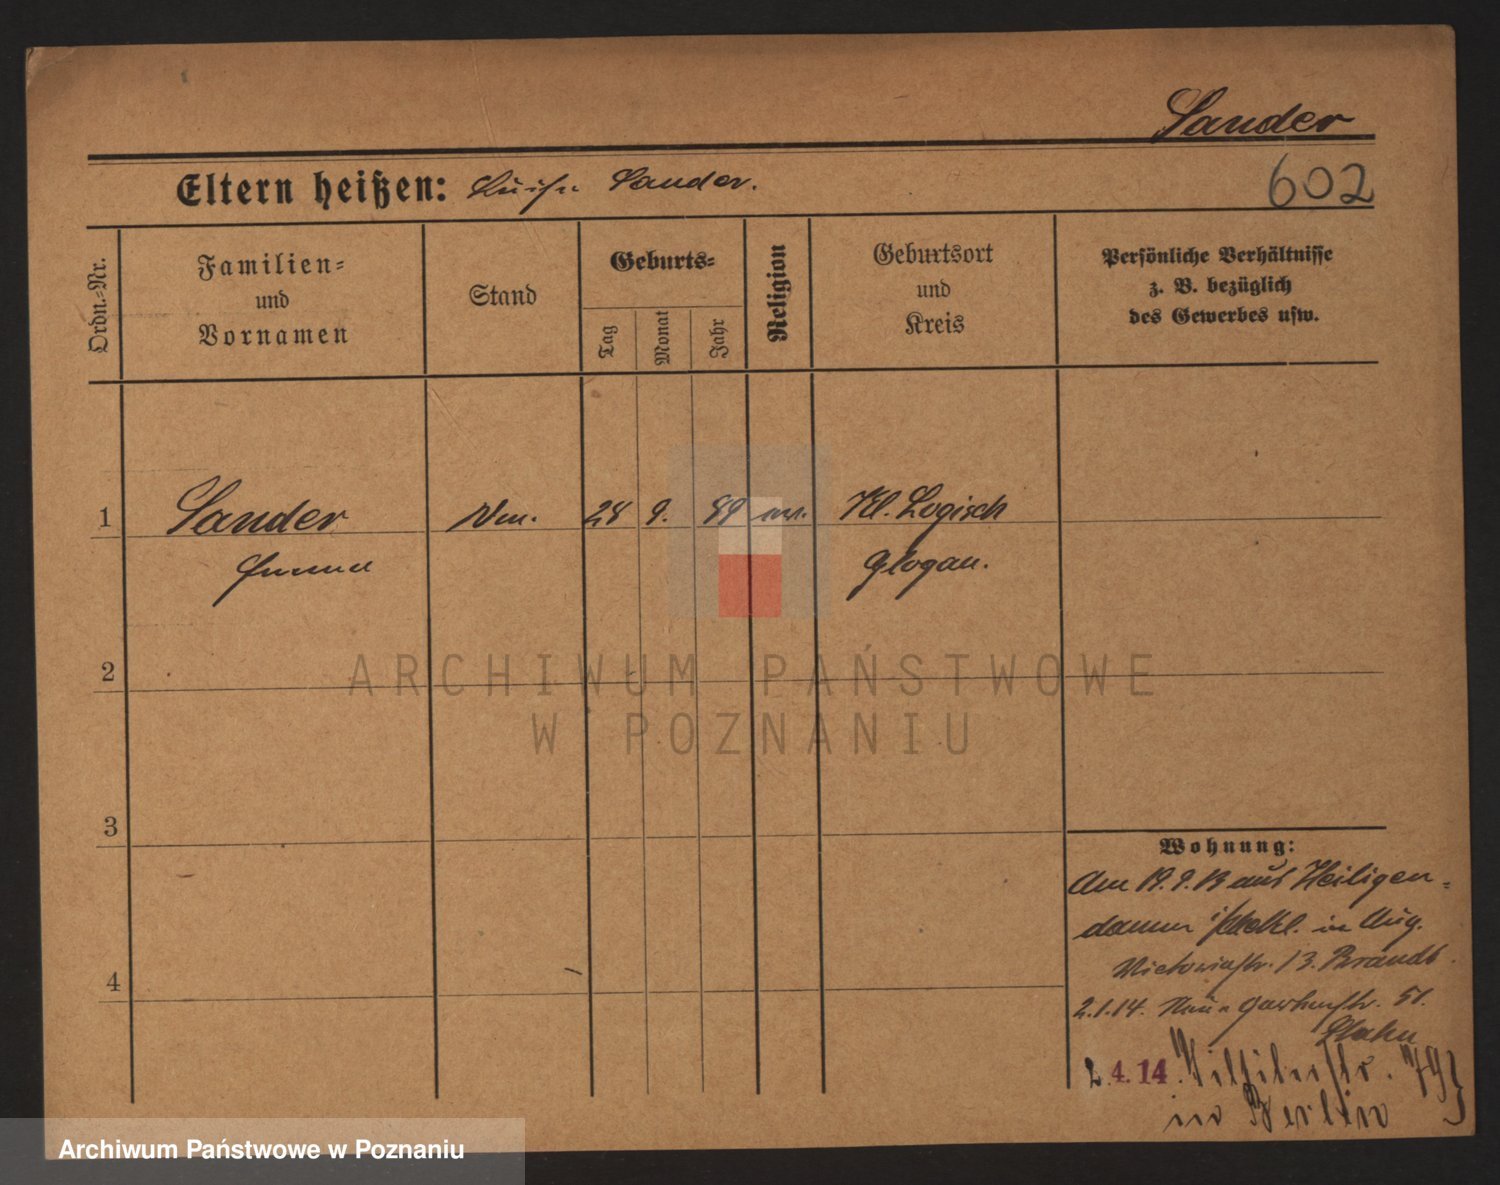 Sander
602
Eltern heißen: Luise Sander.
Ordn.-Nr.
Familien-
und
Vornamen
Stand
Geburts-
Tag
Monat
Jahr
Religion
Geburtsort
und
Kreis
Persönliche Verhältnisse
z. B. bezüglich
des Gewerbes usw.
1 Sander 9. 89 Kl. Logisch
Glogau.
2
3
4
Wohnung:
Am 19.9.13 aus Heiligen-
damm in Aug.
Victoriastr. 13. Brandt.
2.1.14. Neue Gartenstr. 51.
2.4.14.
in Berlin
ARCHIWUM PAŃSTWOWE
W POZNANIU
Archiwum Państwowe w Poznaniu